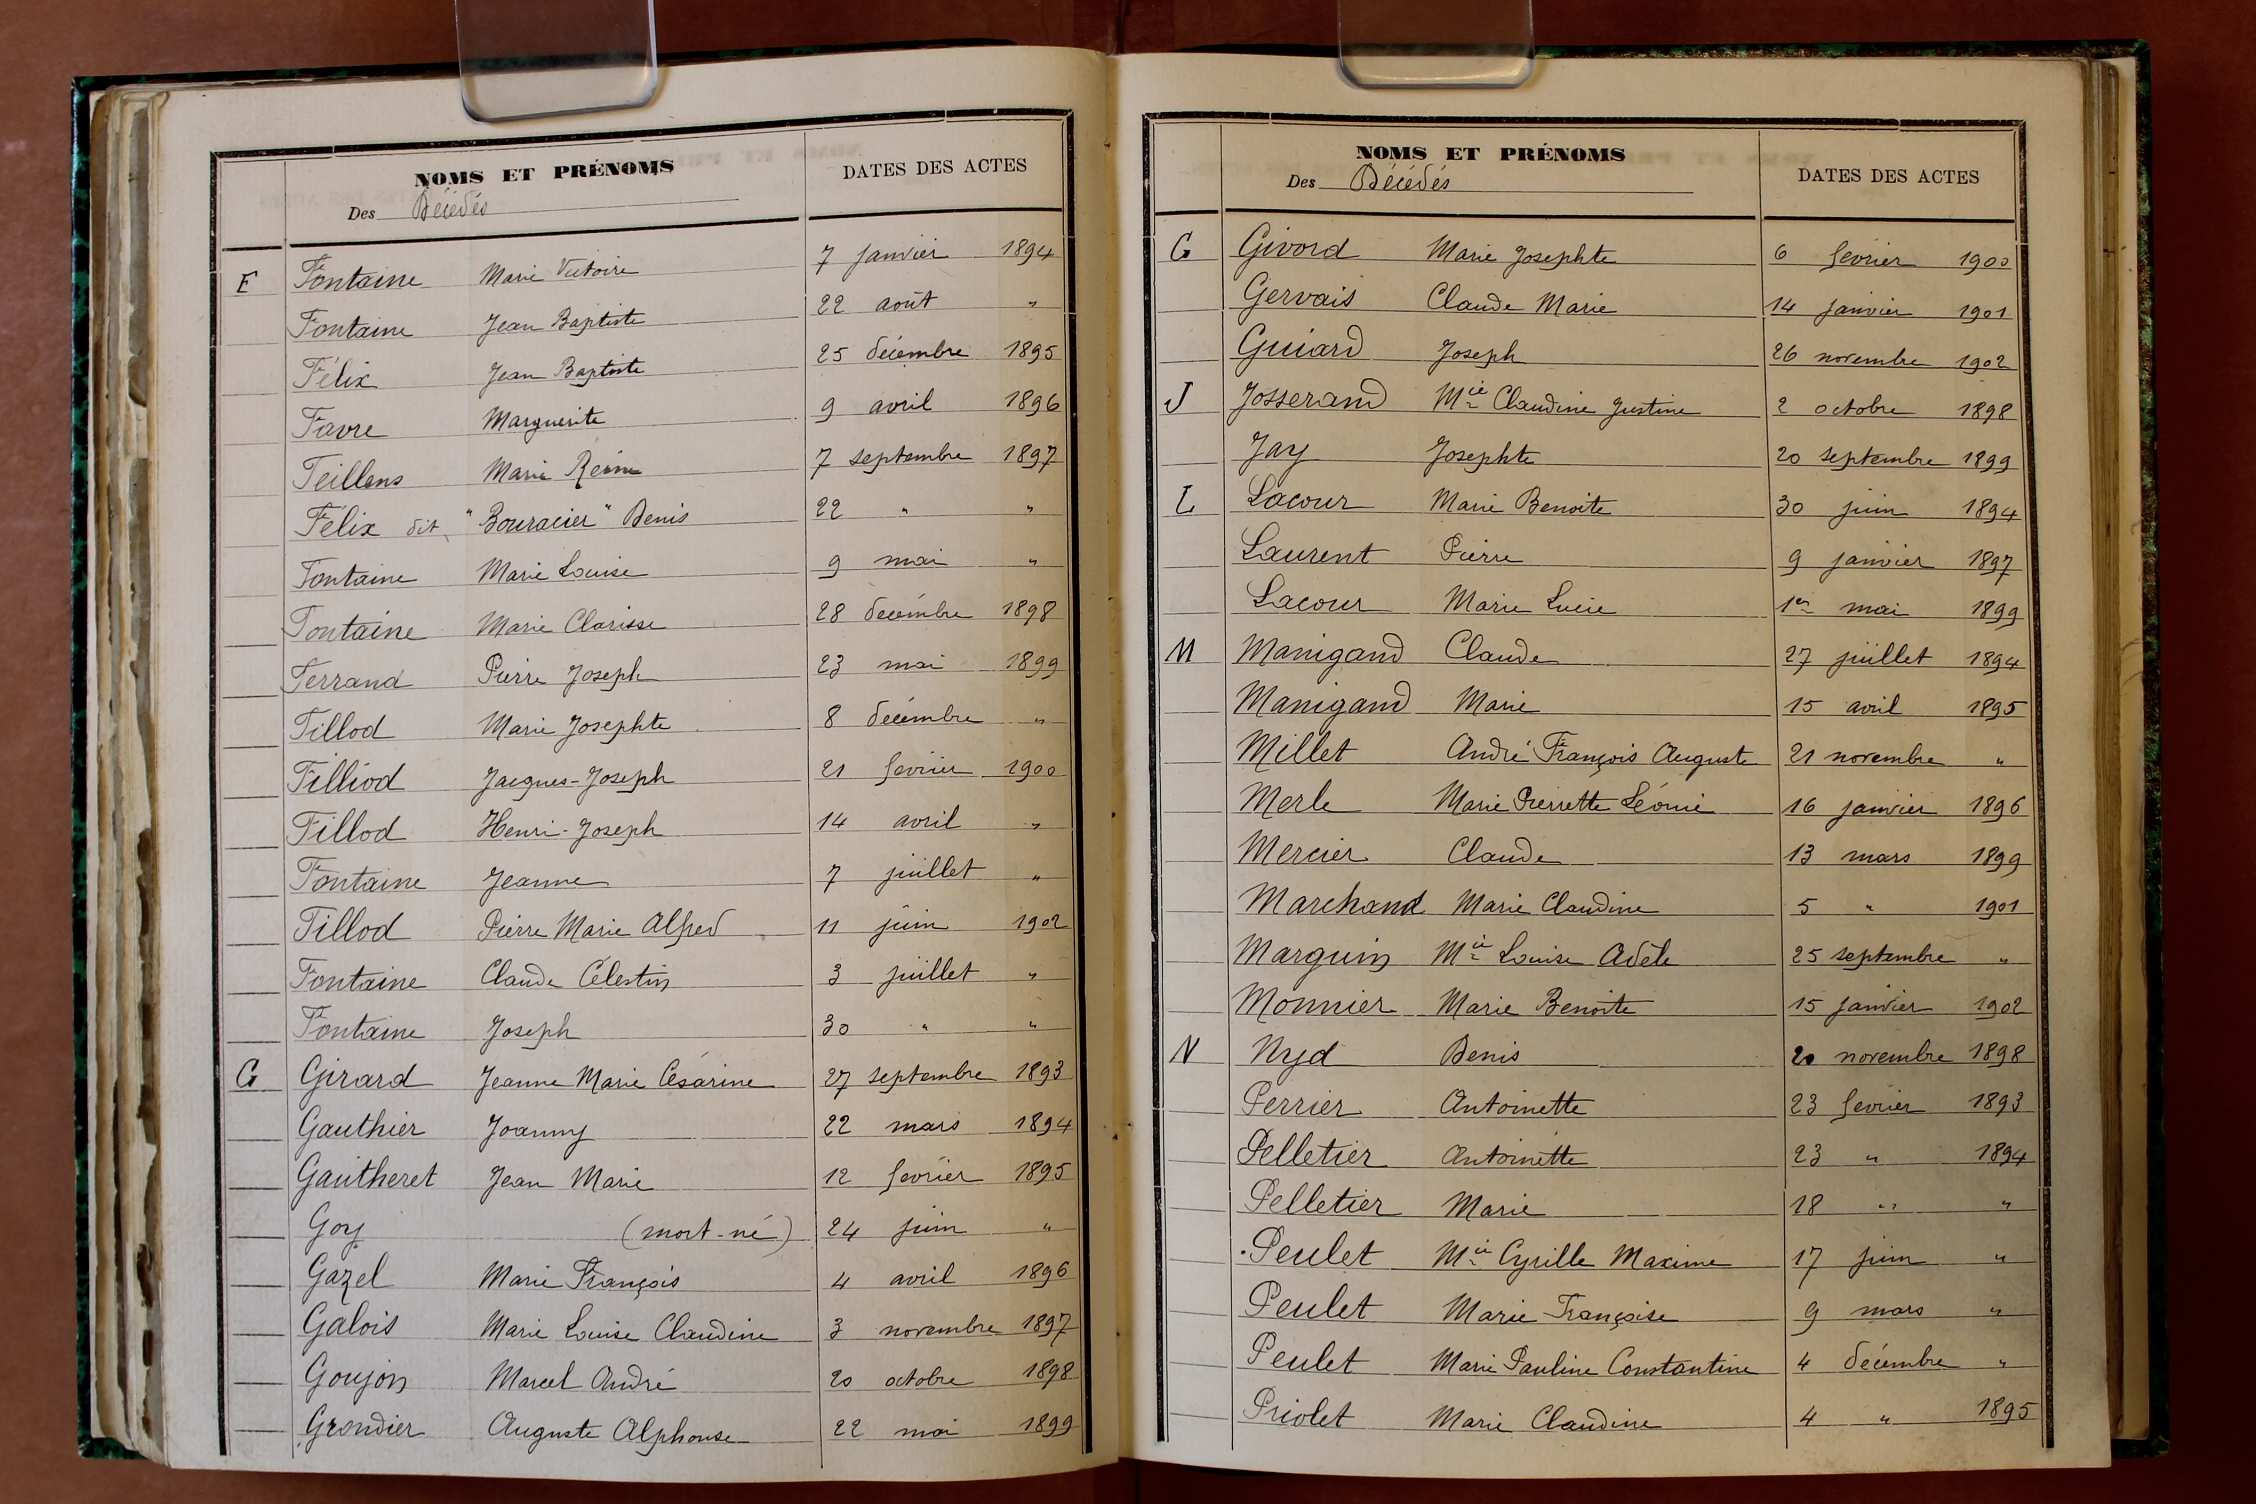 NOMS ET PRÉNOMS
Des Décédés
DATES DES ACTES
F Fontaine Marie Victoire 7 janvier 1894
Fontaine Jean Baptiste 22 août "
Félix Jean Baptiste 25 décembre 1895
Favre Marguerite 9 avril 1896
Feillens Marie Reine 7 septembre 1897
Félix dit "Bouracier" Denis 22 " "
Fontaine Marie Louise 9 mai "
Fontaine Marie Clarisse 28 décembre 1898
Ferrand Pierre Joseph 23 mai 1899
Fillod Marie Josephte 8 décembre "
Filliod Jacques-Joseph 21 février 1900
Fillod Henri-Joseph 14 avril "
Fontaine Jeanne 7 juillet "
Fillod Pierre Marie Alfred 11 juin 1902
Fontaine Claude Célestin 3 juillet "
Fontaine Joseph 30 " "
G Girard Jeanne Marie Césarine 27 septembre 1893
Gauthier Joanny 22 mars 1894
Gautheret Jean Marie 12 février 1895
Goy (mort-né) 24 juin "
Gazel Marie François 4 avril 1896
Galois Marie Louise Claudine 3 novembre 1897
Goujon Marcel André 20 octobre 1898
Grondier Auguste Alphonse 22 mai 1899
NOMS ET PRÉNOMS
Des Décédés
DATES DES ACTES
G Givord Marie Josephte 6 février 1900
Gervais Claude Marie 14 janvier 1901
Guiard Joseph 26 novembre 1902
J Josserand Mie Claudine Justine 2 octobre 1898
Jay Josephte 20 septembre 1899
L Lacour Marie Benoite 30 juin 1894
Laurent Pierre 9 janvier 1897
Lacour Marie Lucie 1er mai 1899
M Manigand Claude 27 juillet 1894
Manigand Marie 15 avril 1895
Millet André François Auguste 21 novembre "
Merle Marie Pierrette Léonie 16 janvier 1896
Mercier Claude 13 mars 1899
Marchand Marie Claudine 5 " 1901
Marguin Mie Louise Adèle 25 septembre "
Monnier Marie Benoite 15 janvier 1902
N Nyd Denis 20 novembre 1898
Perrier Antoinette 23 février 1893
Pelletier Antoinette 23 " 1894
Pelletier Marie 18 " "
Peulet Mie Cyrille Maxime 17 juin "
Peulet Marie Françoise 9 mars "
Peulet Marie Pauline Constantine 4 décembre "
Priolet Marie Claudine 4 " 1895